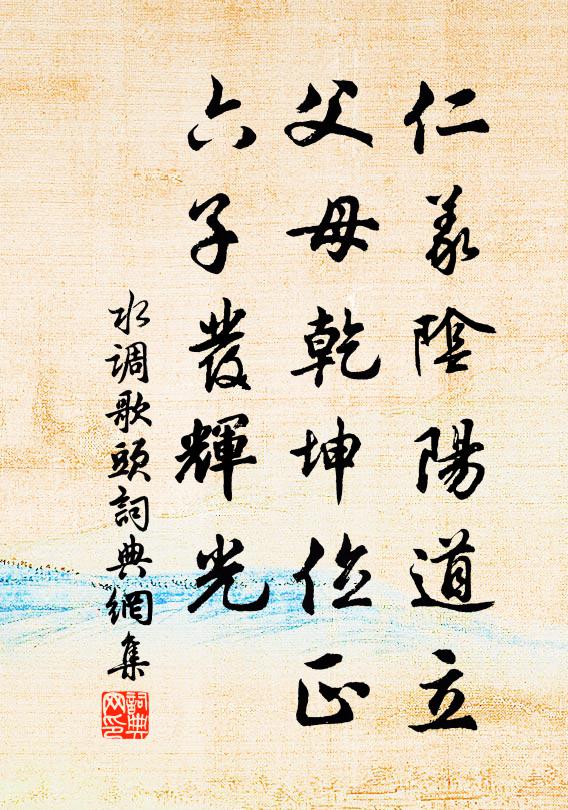 仁義陰陽道立
父母乾坤位正
六子發輝光
水调歌頭詞典網集
詞典
网印